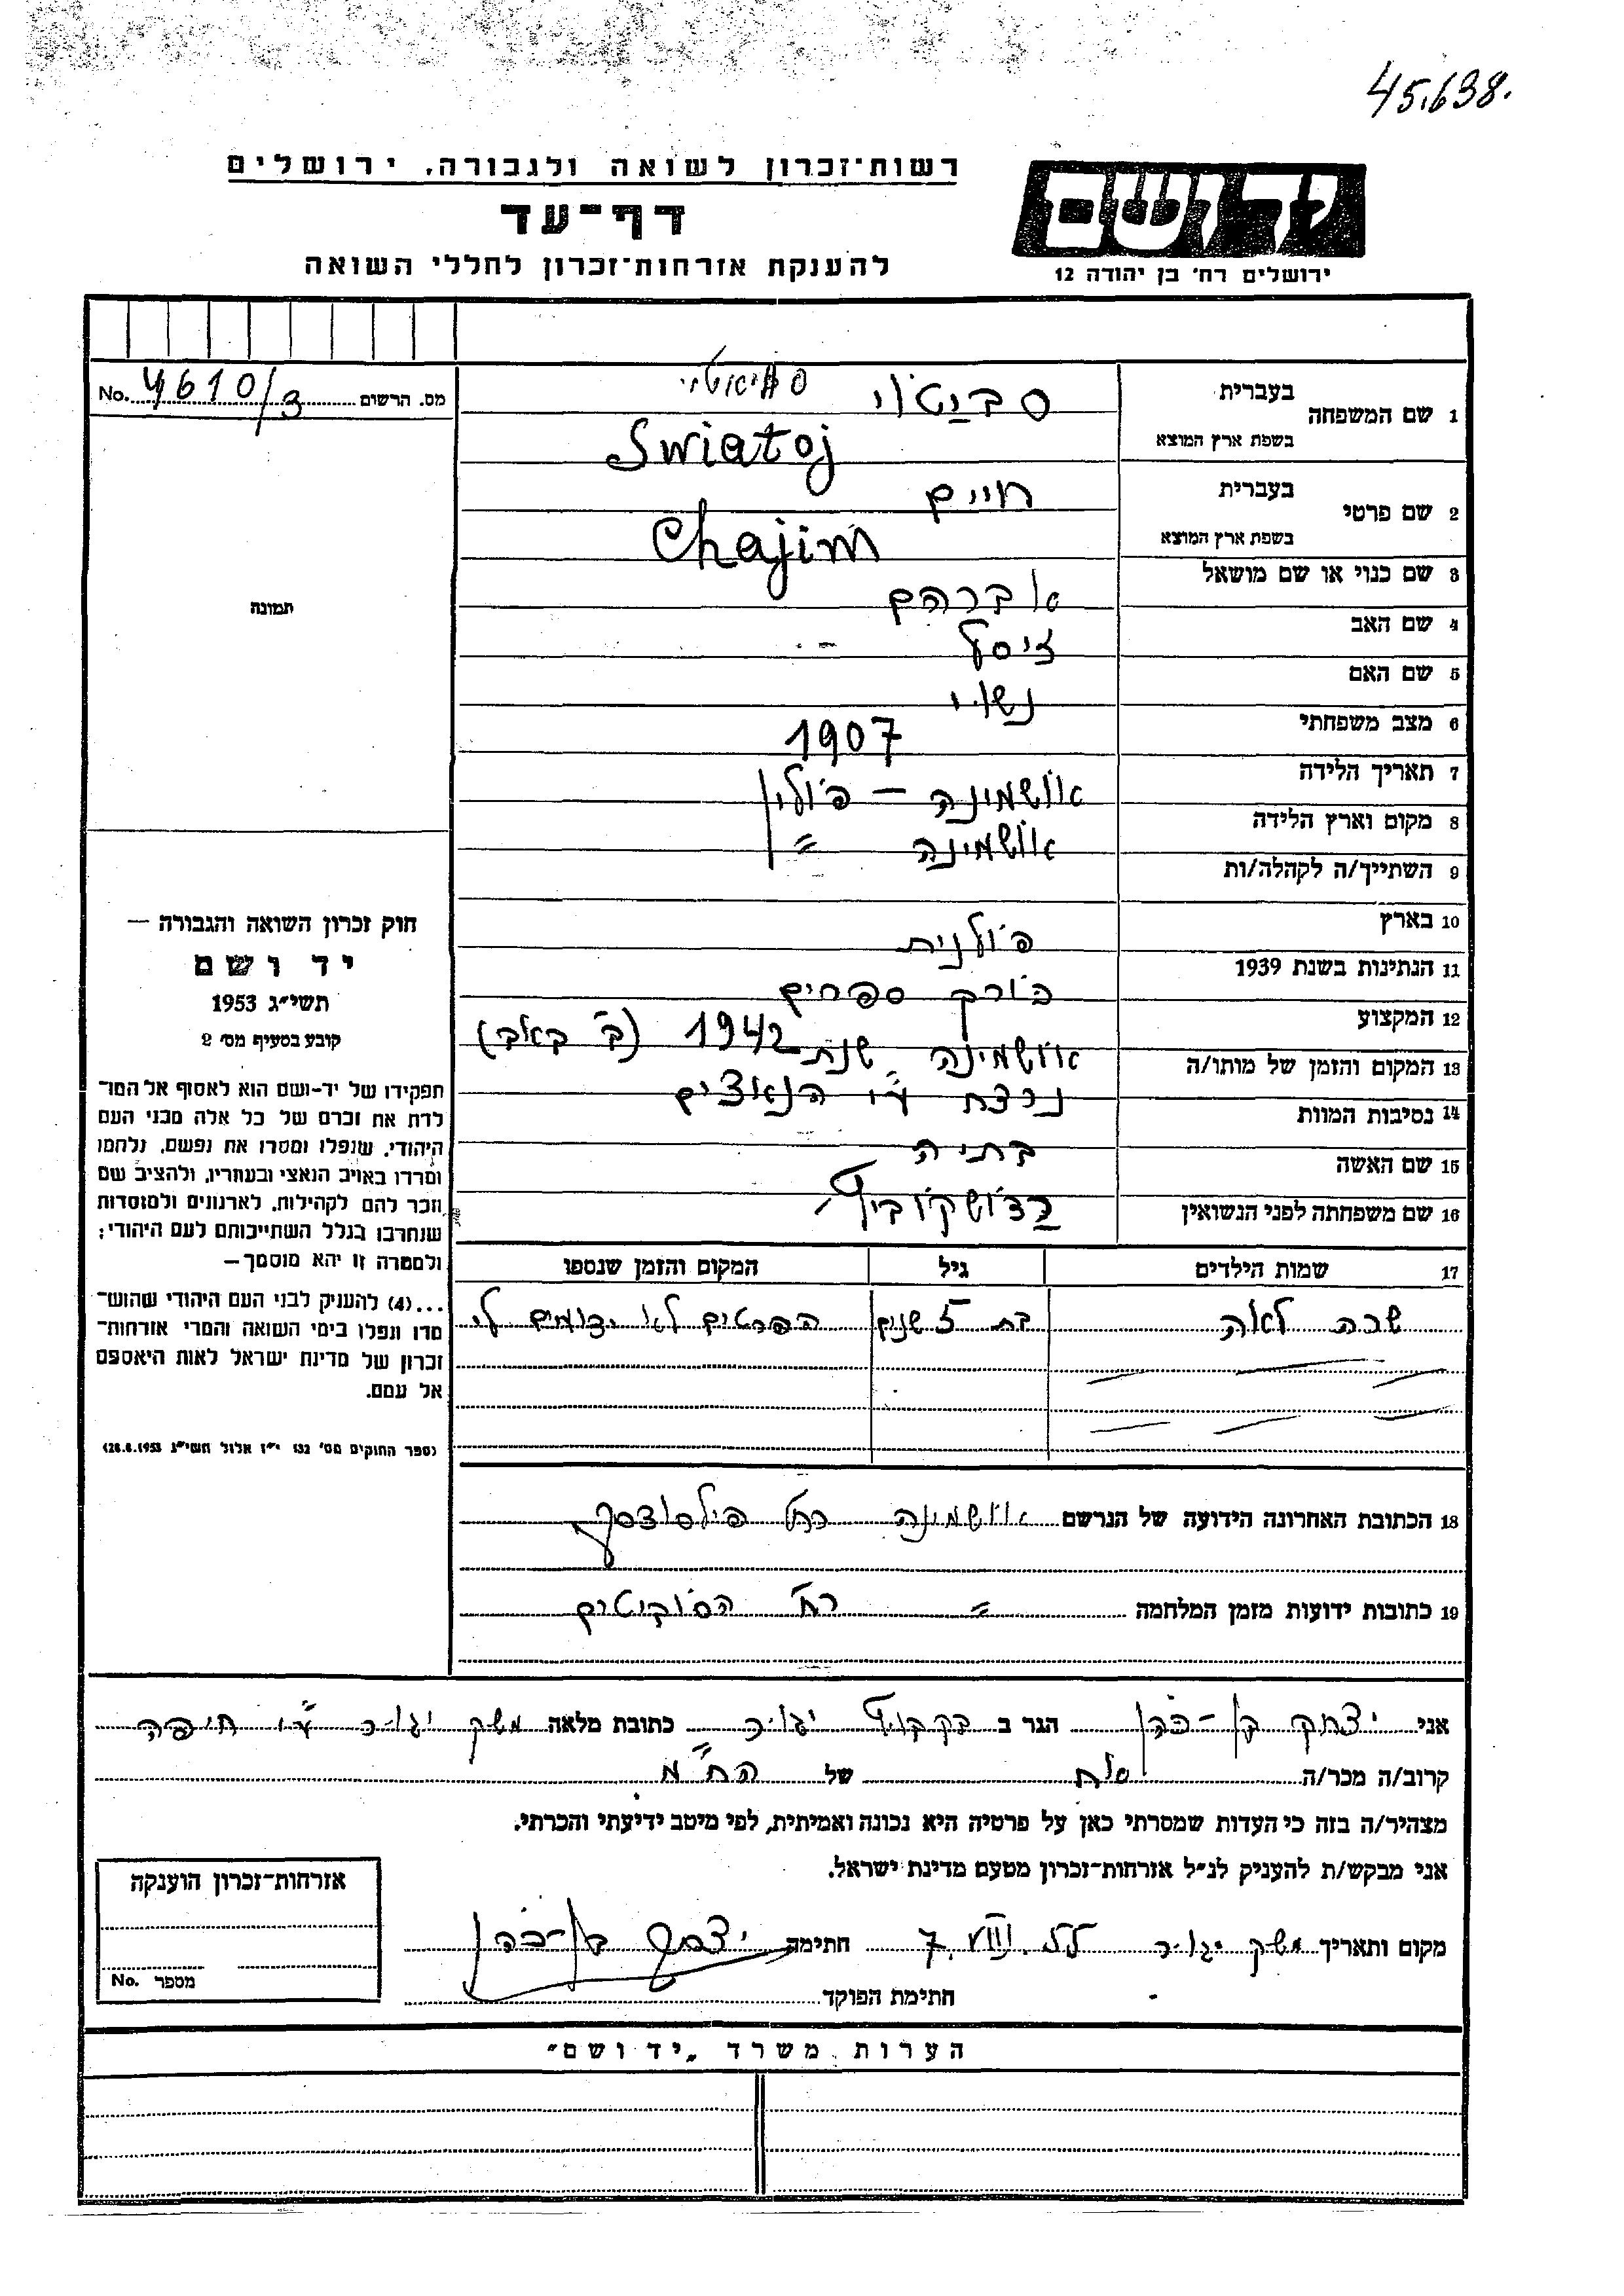 45.638.
רשות־זכרון לשואה ולגבורה, ירושלים
יד ושם
דף־עד
להענקת אזרחות־זכרון לחללי השואה
ירושלים רח׳ בן יהודה 12
מס. הרשום 4610/3 No.
1 שם המשפחה בעברית סביטוי
בשפת ארץ המוצא Swiatoj
2 שם פרטי בעברית חיים
בשפת ארץ המוצא Chajim
3 שם כנוי או שם מושאל
4 שם האב אברהם
5 שם האם ציסל
6 מצב משפחתי נשוי
7 תאריך הלידה 1907
8 מקום וארץ הלידה אושמינה – פולין
9 השתייך/ה לקהלה/ות אושמינה
10 בארץ
11 הנתינות בשנת 1939 פולנית
12 המקצוע כורך ספרים
13 המקום והזמן של מותו/ה אושמינה שנת 1942 (ב׳ באב)
14 נסיבות המוות נרצח ע״י הנאצים
15 שם האשה בתיה
16 שם משפחתה לפני הנשואין
17 שמות הילדים גיל המקום והזמן שנספו
שרה לאה בת 5 שנים הפרטים לא ידועים לי
18 הכתובת האחרונה הידועה של הנרשם אושמינה רח׳ פילסודסקי
19 כתובות ידועות מזמן המלחמה ״ רח׳ הסוביטים
תמונה
חוק זכרון השואה והגבורה —
יד ושם
תשי״ג 1953
קובע בסעיף מס׳ 2
תפקידו של יד־ושם הוא לאסוף אל המו־
לדת את זכרם של כל אלה מבני העם
היהודי, שנפלו ומסרו את נפשם, נלחמו
ומרדו באויב הנאצי ובעוזריו, ולהציב שם
וזכר להם לקהילות, לארגונים ולמוסדות
שנחרבו בגלל השתייכותם לעם היהודי;
ולמטרה זו יהא מוסמך —
...(4) להעניק לבני העם היהודי שהוש־
מדו ונפלו בימי השואה והמרי אזרחות־
זכרון של מדינת ישראל לאות היאספם
אל עמם.
(ספר החוקים מס׳ 132 י״ז אלול תשי״ג 28.8.1953)
אני יצחק בן־כהן הגר ב קבוץ יגור כתובת מלאה משק יגור ע״י חיפה
קרוב/ה מכר/ה אח של הח״מ
מצהיר/ה בזה כי העדות שמסרתי כאן על פרטיה היא נכונה ואמיתית, לפי מיטב ידיעתי והכרתי.
אני מבקש/ת להעניק לנ״ל אזרחות־זכרון מטעם מדינת ישראל.
מקום ותאריך משק יגור 7. VIII. חתימה יצחק בן־כהן
חתימת הפוקד
אזרחות־זכרון הוענקה
מספר No.
הערות משרד „יד ושם״